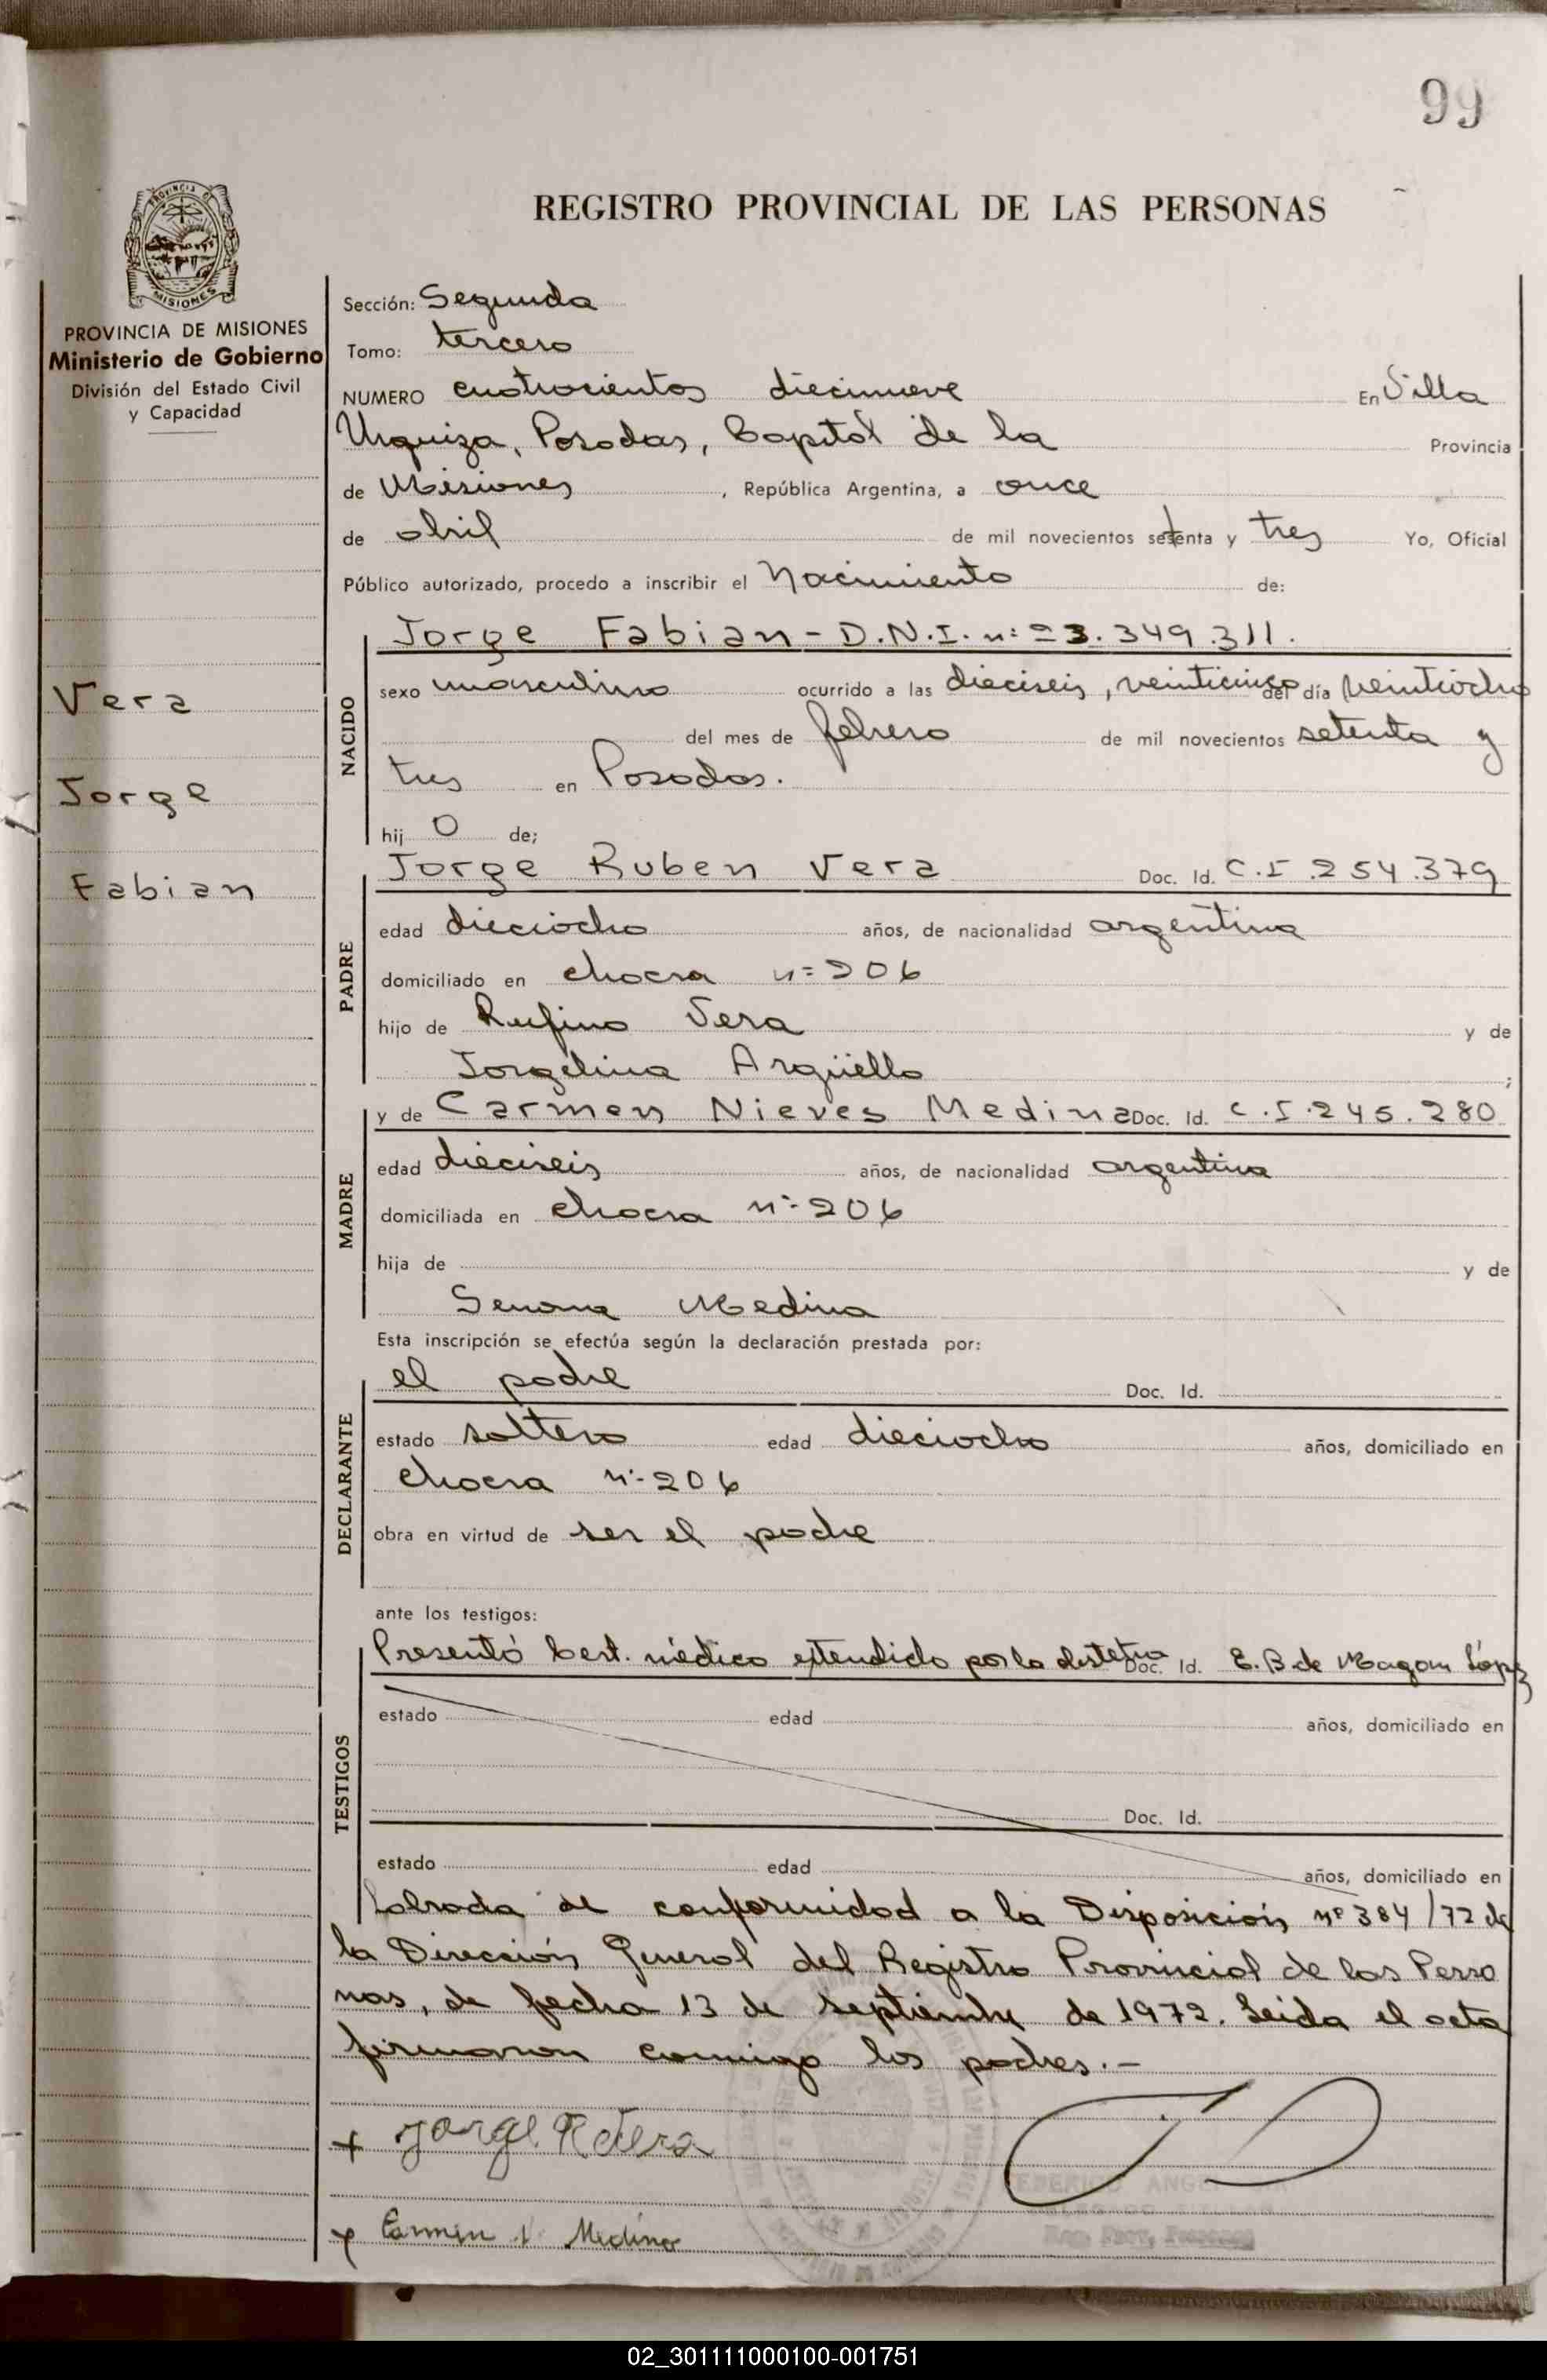 99
REGISTRO PROVINCIAL DE LAS PERSONAS
PROVINCIA DE MISIONES
Ministerio de Gobierno
División del Estado Civil
y Capacidad
Vera
Jorge
Fabian
Sección: Segunda
Tomo: tercero
NUMERO cuatrocientos diecinueve En Villa
Urquiza, Posadas, Capital de la Provincia
de Misiones, República Argentina, a once
de abril de mil novecientos setenta y tres Yo, Oficial
Público autorizado, procedo a inscribir el Nacimiento de:
NACIDO
Jorge Fabian - D.N.I. nº 23.349.311.
sexo masculino ocurrido a las dieciseis, veinticinco del día veintiocho
del mes de febrero de mil novecientos setenta y
tres en Posadas.
hij o de;
PADRE
Jorge Ruben Vera Doc. Id. C.I.254.379
edad dieciocho años, de nacionalidad argentina
domiciliado en chacra nº 206
hijo de Rufino Vera y de
Jorgelina Argüello ;
MADRE
y de Carmen Nieves Medina Doc. Id. C.I.245.280
edad dieciseis años, de nacionalidad argentina
domiciliada en chacra nº 206
hija de y de
Medina
Esta inscripción se efectúa según la declaración prestada por:
DECLARANTE
el padre Doc. Id.
estado soltero edad dieciocho años, domiciliado en
chacra nº 206
obra en virtud de ser el padre
ante los testigos:
TESTIGOS
Presentó Cert. médico extendido por la obstetra Doc. Id. E. B. de López
estado edad años, domiciliado en
Doc. Id.
estado edad años, domiciliado en
Labrada de conformidad a la Disposición nº 384/72 de
la Dirección General del Registro Provincial de las Perso
nas, de fecha 13 de septiembre de 1972. Leida el acta
firmaron conmigo los padres.-
+ Jorge R Vera
Carmen N. Medina
02_301111000100-001751